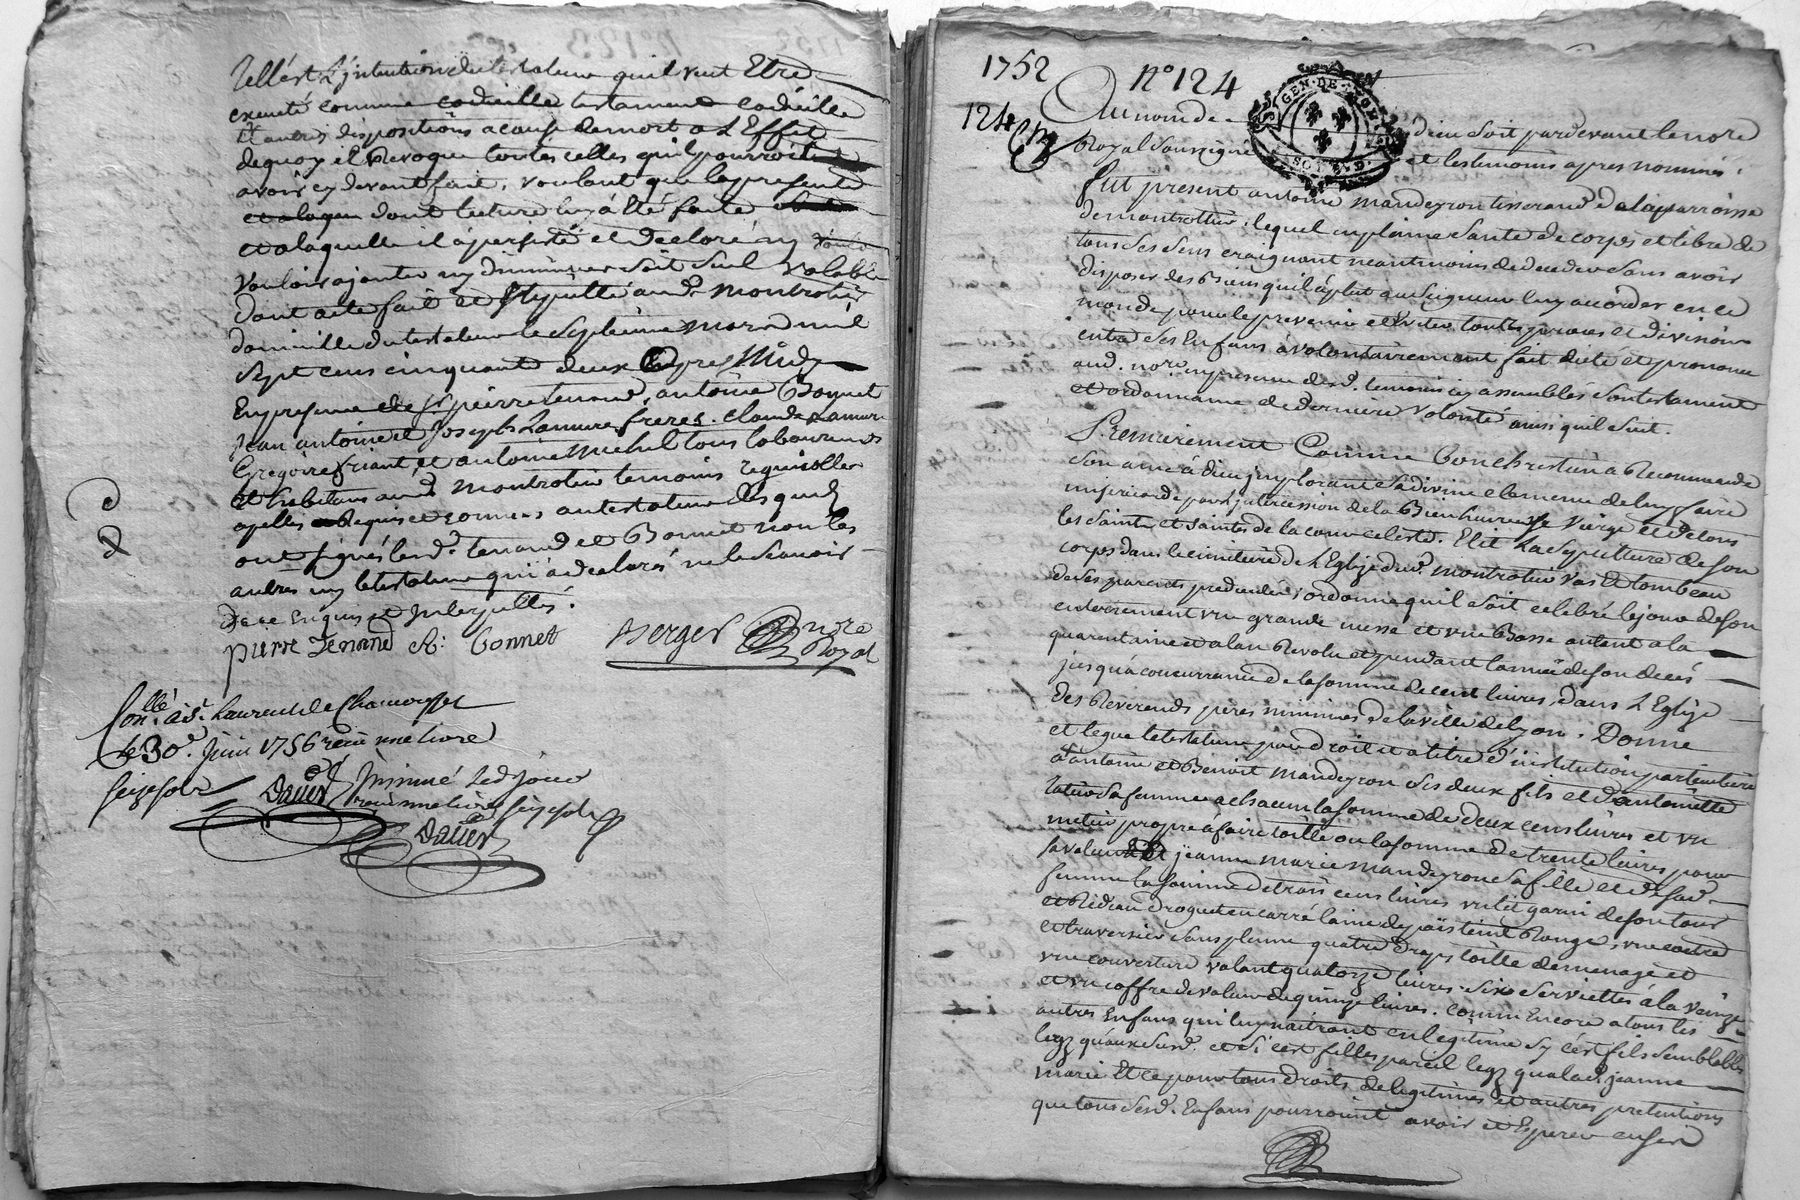 Telle est L'jntention du testateur qu'il veut Etre
executé comme codicille testament codicille
Et autres dispositions a cause de mort a L'Effet
dequoy il Revoque toutes celles qu'il pourroit
avoir cy devant fait, voulant que la presente
dont lecture luy à Eté faitte
et a laquelle il à persisté et declaré ny
vouloir ajouter ny diminuer soit seul valable
dont acte fait et stipullé aud. Montrotier
domicille du testateur le septieme mars mil
sept cens cinquante deux apres Midy
En presence de pierre tenand, antoine Bonnet
jean antoine et Joseph Lamure freres, claude Lamure
Gregoire friant, et antoine Michel tous laboureurs
et habitans aud. Montrotier temoins requis
apellés Requis et connus au testateur desquels
ont signé lesd. tenand et Bonnet non les
autres ny le testateur qui a declaré ne le scavoir
de ce Enquis et jnterpellés.
pierre Tenand A: bonnet Berger nore Royal
Conllé à St. Laurent de Chamousset
le 30e. Juin 1756 reçu une livre
seize sols Dauer
jnsinué led. jour
reçu une livre seize sols
Dauer
1752 N° 124
124
GEN. DE LYON
Au nom de dieu soit pardevant le nore
Royal soussigné et les temoins apres nommés.
fut present antoine Mandeyron tisserand de la parroisse
de montrottier, lequel en plaine santé de corps et libre de
tous ses sens craignant neantmoins de deceder sans avoir
disposer des Biens qu'il à plut au Seigneur luy accorder en ce
monde pour le prevenir et Eviter touttes proces et division
entre ses Enfans à volontairement fait dicté et prononcé
aud. nore en presence desd. temoins cy assemblés son testament
et ordonnance de derniere volonté ainsi qu'il suit.
Premierement Comme Bon chrestien a Recommandé
son ame à dieu jmplorant sa divine clemence de luy faire
misericorde par l'jntercession de la Bienheureuse Vierge et de tous
les saints et saintes de la cour celeste. Elit La sepulture de son
corps dans le cimetiere de l'Eglize dud. montrotier vas Et tombeau
de ses parents predecedés; ordonne qu'il soit celebré le jour de son
enterrement une grande messe et une Basse autant a la
quarantaine et a l'an Revolu et pendant l'année de son deces
jusqu'a concurrance de la somme de cent livres, dans L'Eglize
des Reverends peres minimes de la ville de Lyon. Donne
et legue le testateur pour droit et a titre d'jnstitution particuliere
à antoine et Benoit Mandeyron ses deux fils et d'antoinette
sa femme a chacun la somme de deux cens livres et un
metier propre à faire toille ou la somme de trente livres pour
sa valeur Et jeanne marie Mandeyron sa fille et de sad.
femme la somme de trois cens livres un lit garni de son tour
et Rideau Droguet en carré laine de païs teint Rouge, une coitre
et traversier sans plume quatre draps toille de menage et
une couverture valant quatorze livres. six serviettes à la Venize
et un coffre de valeur de quinze livres. Comm' Encore a tous les
autres Enfans qui luy naitront en legitime sy c'est fils semblables
legz qu'aux susd. et si c'est filles pareil legz qu'a lad. jeanne
marie Et ce pour tous droits de legitimes et autres pretentions
que tous sesd. Enfans pourroient avoir et Esperer en ses